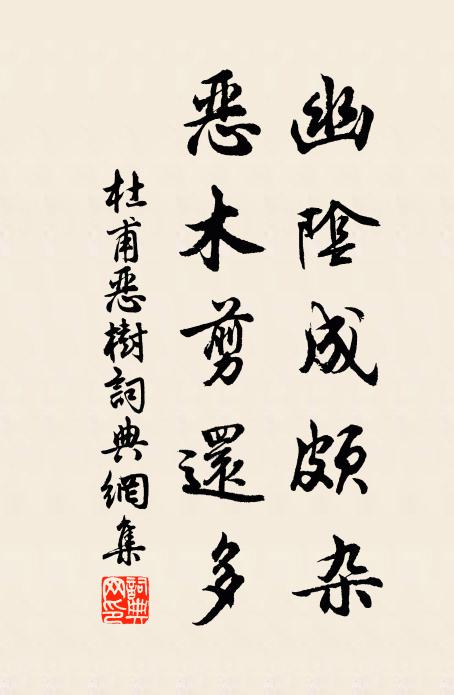 幽陰成頗杂
恶木剪還多
杜甫恶樹詞典網集
詞典网印